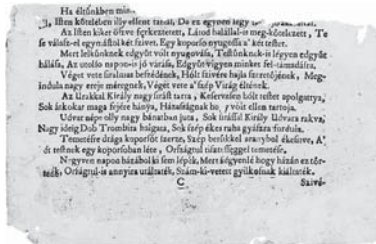 Ha éltönkben
Isten kötelében illy ellent tartál, De ez egyben
Az Isten kiket öszve ſzerkeztetett, Látod halállal-is meg-kötelezett, Te
ſe válaſzt-el egymástúl két ſzivet, Egy koporso nyugoſſa a' két teſtet.
Mert lelkünknek edgyüt vólt nyugovása, Teſtünknek-is légyen edgyüt
hálása, Az utolſo napon-is jó várása, Edgyüt vigyen minket fel-támadásra.
Véget vete ſiralmas beſzédének, Hólt ſzivére hajla ſzeretőjének, Meg-
indula nagy ereje méregnek, Véget vete a' ſzép Virág éltének.
Az Urakkal Király nagy ſirást tarra, Keſerveſen hólt teſtet apolgattya,
Sok árkokat maga fejére hánya, Házaſságnak ho y vólt ellen tartoja.
Udvar népe olly nagy bánatban juta, Sok ſiráſſal Király Udvara rakva,
Nagy ideig Dob Trombita halgata, Sok ſzép ékes ruha gyászra fordula.
Temetésére drága koporſót ſzerze, Szép berſikkel aranybol ékeſitve, A'
két teſtnek egy koporſoban léte, Orſzágtul tiſzteſſéggel temetése.
N-gyven napon házábol ki ſem lépik, Mert ſzégyenlé hogy házán ez tör-
ték, Orſzágtul-is annyira utáltaték, Szám-ki-vetett gyilkoſnak kiálták.
C
Szivé-